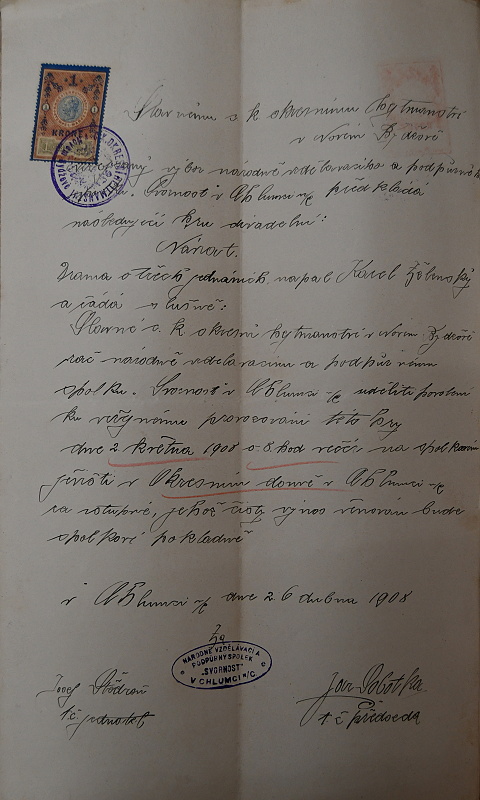 1
KRONE
Slavnému c. k. okresnímu hejtmanství
v Novém Bydžově
výbor národně vzdělavacího a podpůrného
spolku. Svornost v Chlumci n/c předkládá
následující hru divadelní:
Návrat.
Drama o třech jednáních, napsal Karel Želenský
a žádá slušně:
Slavné c. k. okresní hejtmanství v Novém Bydžově
rač národně vzdelavacímu a podpůrnému
spolku. Svornost v Chlumci n/c uděliti povolení
ku veřejnému provozování této hry
dne 2. května 1908 o 8 hod večer na spolkovém
jevišti v Okresním domě v Chlumci n/c
za vstupné, jehož čistý výnos věnován bude
spolkové pokladně
v Chlumci n/c dne 26 dubna 1908
Za
NÁRODNĚ VZDĚLÁVACÍ A
PODPŮRNÝ SPOLEK
"SVORNOST"
V CHLUMCI N/C
Josef
t. č. jednatel
Jar. Sobotka
t. č. předseda